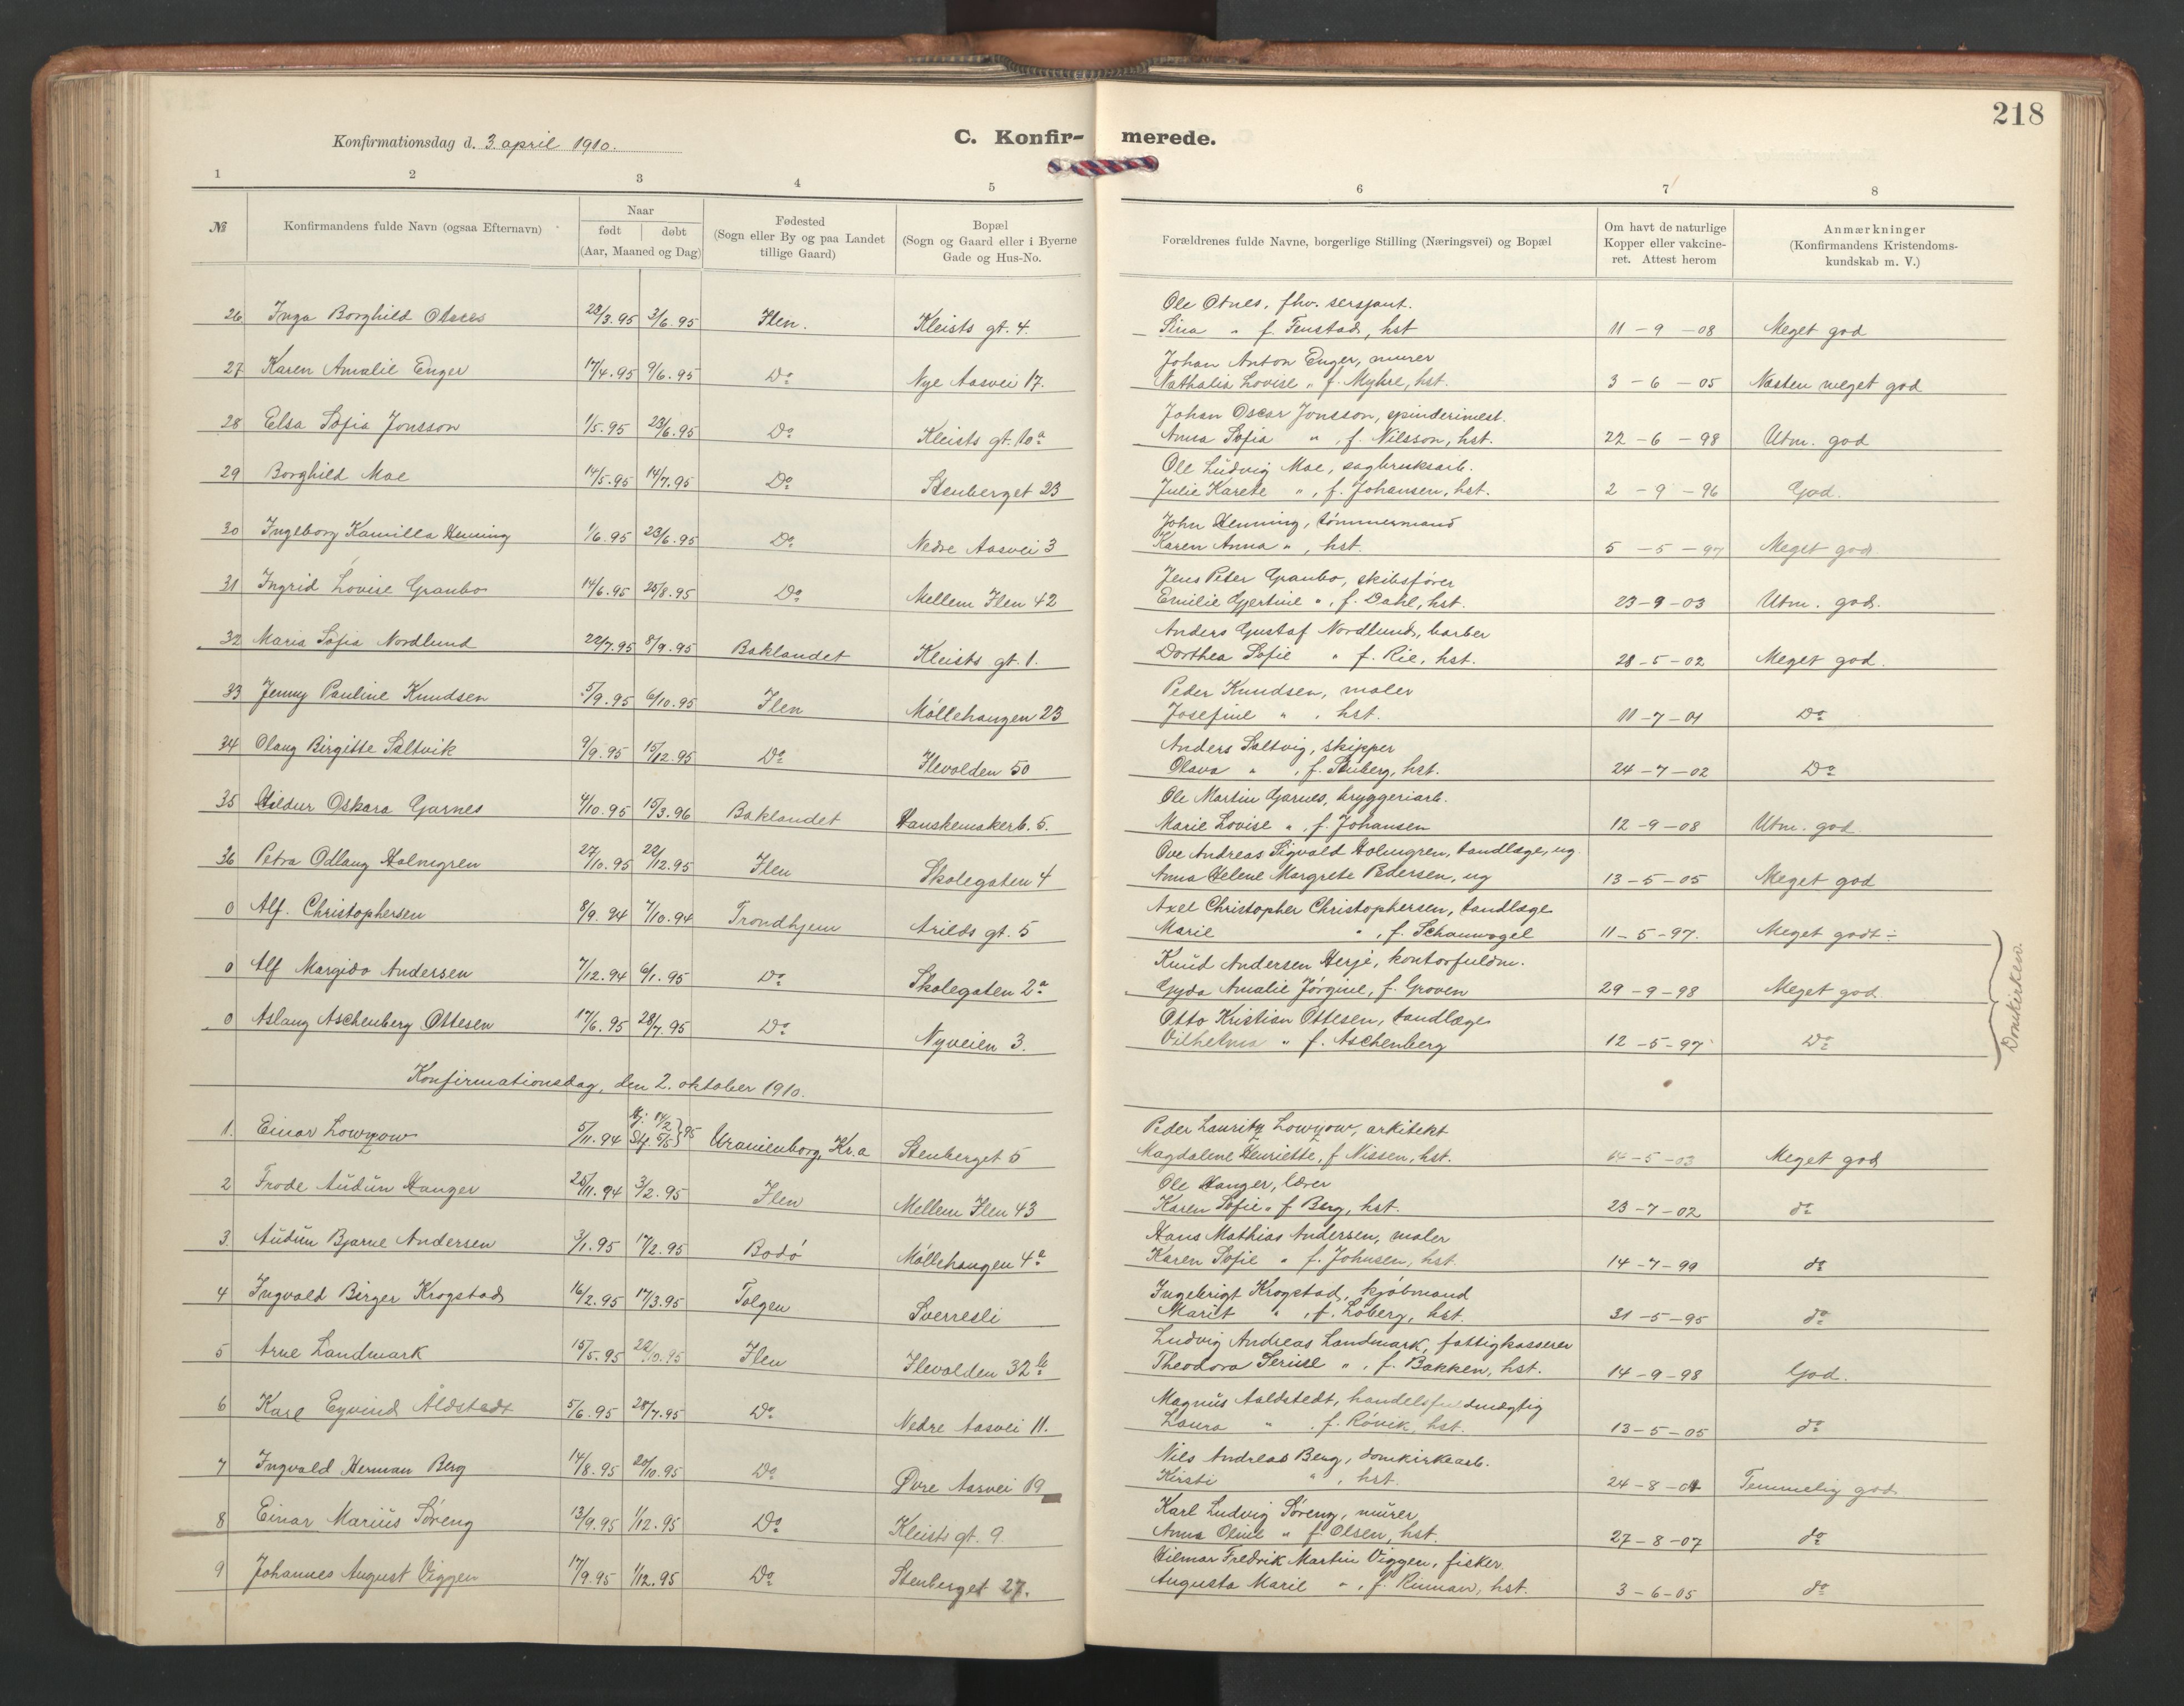 218
Konfirmationsdag d. 3. april 1910.
C. Konfir- merede.
1 2 3 4 5 6 7 8
№ Konfirmandens fulde Navn (ogsaa Efternavn) Naar født døbt (Aar, Maaned og Dag) Fødested (Sogn eller By og paa Landet tillige Gaard) Bopæl (Sogn og Gaard eller i Byerne Gade og Hus-No. Forældrenes fulde Navne, borgerlige Stilling (Næringsvei) og Bopæl Om havt de naturlige Kopper eller vakcineret. Attest herom Anmærkninger (Konfirmandens Kristendomskundskab m. V.)
26 Inga Borghild Otnes 28/3.95 3/6.95 Ilen. Kleists gt. 4. Ole Otnes, fhv. sersjant.
Sina " f. Fenstad, hst 11-9-08 Meget god
27 Karen Amalie Enger 17/4.95 9/6.95 Do Nye Aasvei 17. Johan Anton Enger, murer
Nathalia Lovise " f. Myhre, hst. 3-6-05 Næsten meget god
28 Elsa Sofia Jonsson 1/5.95 23/6.95 Do Kleists gt. 10a Johan Oscar Jonsson, spinderimest.
Anna Sofia ", f. Nilsson, hst. 22-6-98 Utm. god
29 Borghild Moe 14/5.95 14/7.95 Do Stenberget 23 Ole Ludvig Moe, sagbruksarb.
Julie Karete ", f. Johansen, hst. 2-9-96 God.
30 Ingeborg Kamilla Henning 1/6.95 23/6.95 Do Nedre Aasvei 3 John Henning, tømmermand
Karen Anna ", hst. 5-5-97 Meget god
31 Ingrid Lovise Granbo 14/6.95 25/8.95 Do Mellem Ilen 42 Jens Peter Granbo, skibsfører
Emilie Gjertine ", f. Dahl, hst. 23-9-03 Utm. god.
32 Maria Sofia Nordlund 22/7.95 8/9.95 Baklandet Kleists gt. 1. Anders Gustaf Nordlund, barber
Dorthea Sofie " f. Rie, hst. 28-5-02 Meget god.
33 Jenny Pauline Knudsen 5/9.95 6/10.95 Ilen Møllehaugen 23 Peder Knudsen, maler
Josefine ", hst. 11-7-01 Do
34 Olaug Birgitte Saltvik 9/9.95 15/12.95 Do Ilevolden 50 Anders Saltvig, skipper
Olava ", f. Stuberg, hst. 24-7-02 Do
35 Hildur Oskara Garnes 4/10.95 15/3.96 Baklandet Hanskemakerb. 5. Ole Martin Garnes, bryggeriarb.
Marie Lovise ", f. Johansen 12-9-08 Utm. god
36 Petra Odlaug Holmgren 27/10.95 22/12.95 Ilen Skolegaten 4 Ove Andreas Sigvald Holmgren, tandlæge, ug.
Anna Helene Margrete Pedersen, ug 13-5-05 Meget god
0 Alf. Christophersen 8/9.94 7/10.94 Trondhjem Arilds gt. 5 Axel Christopher Christophersen, tandlæge
Marie ", f. Schauvogel 11-5-97. Meget godt -
0 Alf Margido Andersen 7/12.94 6/1.95 Do Skolegaten 2a Knud Andersen Herje, kontorfuldm.
Gyda Amalie Jørgine, f. Groven 29-9-98 Meget god
0 Aslaug Aschenberg Ottesen 17/6.95 28/7.95 Do Nyveien 3. Otto Kristian Ottesen, tandlæge
Vilhelma " f. Aschenberg 12-5-97 Do
Domkirken.
Konfirmationsdag, den 2. oktober 1910.
1. Einar Lowzow 5/11.94 Hj. 14/2 Stf. 5/5 } 95 Uranienborg, Kr.a Stenberget 5 Peder Lauritz Lowzow, arkitekt
Magdalene Henriette, f. Nissen, hst. 14-5-03 Meget god
2 Frode Audun Hanger 25/11.94 3/2.95 Ilen Mellem Ilen 43 Ole Hanger, lærer
Karen Sofie " f Berg, hst. 23-7-02 do
3. Audun Bjarne Andersen 3/1.95 17/2.95 Bodø Møllehaugen 4a Hans Mathias Andersen, maler
Karen Sofie " f. Johnsen, hst. 14-7-99 do
4 Ingvald Birger Krogstad 16/2.95 17/3.95 Tolgen Sverresli Ingebrigt Krogstad, kjøbmand
Marit ", f. Loberg, hst. 31-5-95 do
5 Arne Landmark 15/5.95 20/10.95 Ilen Ilevolden 32b Ludvig Andreas Landmark, fattigkasserer
Theodora Serine ", f. Bakken, hst. 14-9-98 God.
6 Karl Eyvind Åldstedt 5/6.95 28/7.95 Do Nedre Aasvei 11. Magnus Aaldstedt, handelsfuldmægtig
Laura " f. Røvik, hst. 13-5-05 do
7 Ingvald Herman Berg 14/8.95 20/10.95 Do Øvre Aasvei 19 Nils Andreas Berg, domkirkearb.
Kirsti ", hst. 24-8-01 Temmelig god
8 Einar Marius Søreng 13/9.95 1/12.95 Do Kleists gt. 9. Karl Ludvig Søreng, murer
Anna Oline " f. Olsen, hst. 27-8-07 do
9 Johannes August Viggen 17/9.95 1/12.95 Do Stenberget 27. Hilmar Fredrik Martin Viggen, fisker.
Augusta Marie ", f. Rinnan, hst. 3-6-05 do